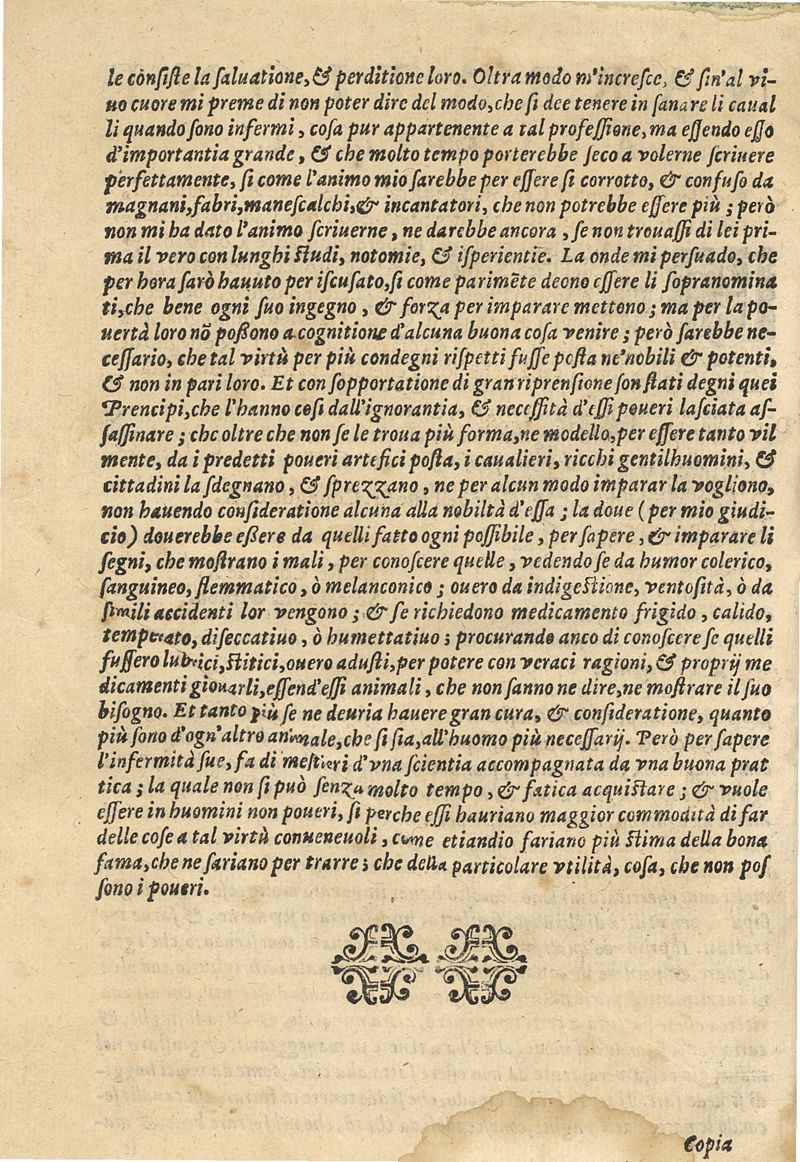 le cõnsiste la saluatione, & perditione loro. Oltra modo m'incresce, & sin'al vi-
uo cuore mi preme di non poter dire del modo, che si dee tenere in sanare li caual
li quando sono infermi, cosa pur appartenente a tal professione, ma essendo esso
d'importantia grande, & che molto tempo porterebbe seco a volerne scriuere
perfettamente, si come l'animo mio sarebbe per essere si corrotto, & confuso da
magnani, fabri, manescalchi, & incantatori, che non potrebbe essere più; però
non mi ha dato l'animo scriuerne, ne darebbe ancora, se non trouassi di lei pri-
ma il vero con lunghi studi, notomie, & isperientie. La onde mi persuado, che
per hora sarò hauuto per iscusato, si come parimẽte deono essere li sopranomina
ti, che bene ogni suo ingegno, & forza per imparare mettono; ma per la po-
uertà loro nõ possono a cognitione d'alcuna buona cosa venire; però sarebbe ne-
cessario, che tal virtù per più condegni rispetti fusse posta ne'nobili & potenti,
& non in pari loro. Et con sopportatione di gran riprensione son stati degni quei
Prencipi, che l'hanno cosi dall'ignorantia, & necessità d'essi poueri lasciata as-
sassinare; che oltre che non se le troua più forma, ne modello, per essere tanto vil
mente, da i predetti poueri artefici posta, i caualieri, ricchi gentilhuomini, &
cittadini la sdegnano, & sprezzano, ne per alcun modo imparar la vogliono,
non hauendo consideratione alcuna alla nobiltà d'essa; la doue (per mio giudi-
cio) douerebbe essere da quelli fatto ogni possibile, per sapere, & imparare li
segni, che mostrano i mali, per conoscere quelle, vedendo se da humor colerico,
sanguineo, flemmatico, ò melanconico; ouero da indigestione, ventosità, ò da
simili accidenti lor vengono; & se richiedono medicamento frigido, calido,
temperato, diseccatiuo, ò humettatiuo; procurando anco di conoscere se quelli
fussero lubrici, stitici, ouero adusti, per potere con veraci ragioni, & proprij me
dicamenti giouarli, essend'essi animali, che non sanno ne dire, ne mostrare il suo
bisogno. Et tanto più se ne deuria hauere gran cura, & consideratione, quanto
più sono d'ogn'altro animale, che si sia, all'huomo più necessarij. Però per sapere
l'infermità sue, fa di mestieri d'vna scientia accompagnata da vna buona prat
tica; la quale non si può senza molto tempo, & fatica acquistare; & vuole
essere in huomini non poueri, si perche essi hauriano maggior commodità di far
delle cose a tal virtù conueneuoli, come etiandio fariano più stima della bona
fama, che ne sariano per trarre; che della particolare vtilità, cosa, che non pos
sono i poueri.
Copia